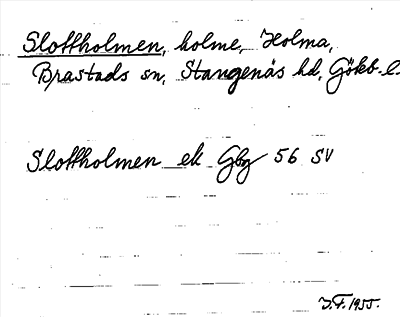 Slottholmen, holme, Holma,
Brastads sn, Stangenäs hd, Gökb. l.
Slottholmen ek Gbg 56 SV
J.F. 1955.